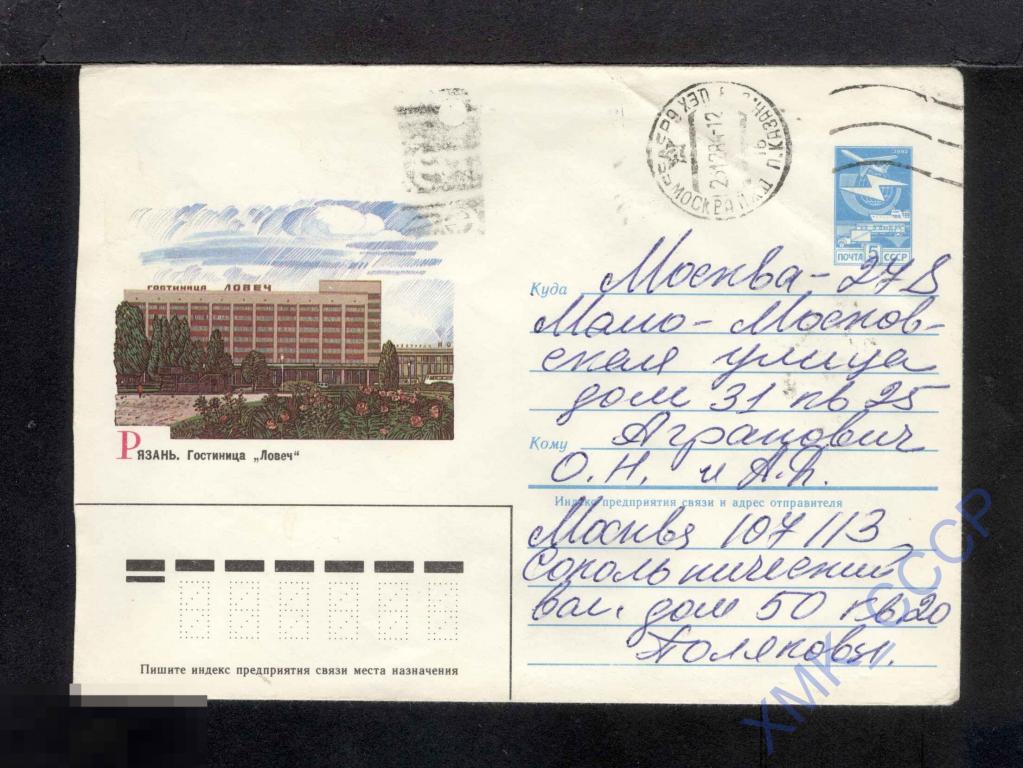 ГОСТИНИЦА ЛОВЕЧ
РЯЗАНЬ. Гостиница „Ловеч“
МОСКВА
23128-12
16
1982
ПОЧТА 5 СССР
Куда Москва-278
Мало-Москов-
ская улица
дом 31 кв 25
Кому Агранович
О.Н. и А.Л.
Индекс предприятия связи и адрес отправителя
Москва 107113
Сокольнический
вал. дом 50 кв 20
Поляковы.
Пишите индекс предприятия связи места назначения
ХМК СССР